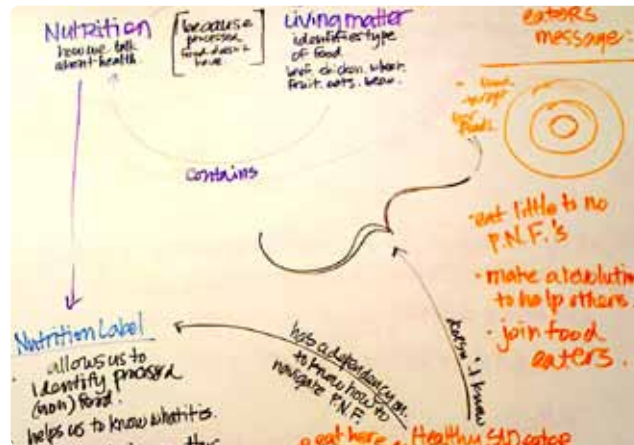 Nutrition
how we talk
about health.
[because
processed
food doesn't
have
Living matter
identifies type
of food
beef, chicken, wheat,
fruit, oats, bean.
contains
eaters
message:
eat little to no
P.N.F.'s
• make a revolution
to help others
• join food
eaters.
Nutrition Label
allows us to
identify processed
(non) food.
helps us to know what it is.
has a dependency on
to know how to
navigate P.N.F.
doesn't know
eat here
Healthy SAD eater